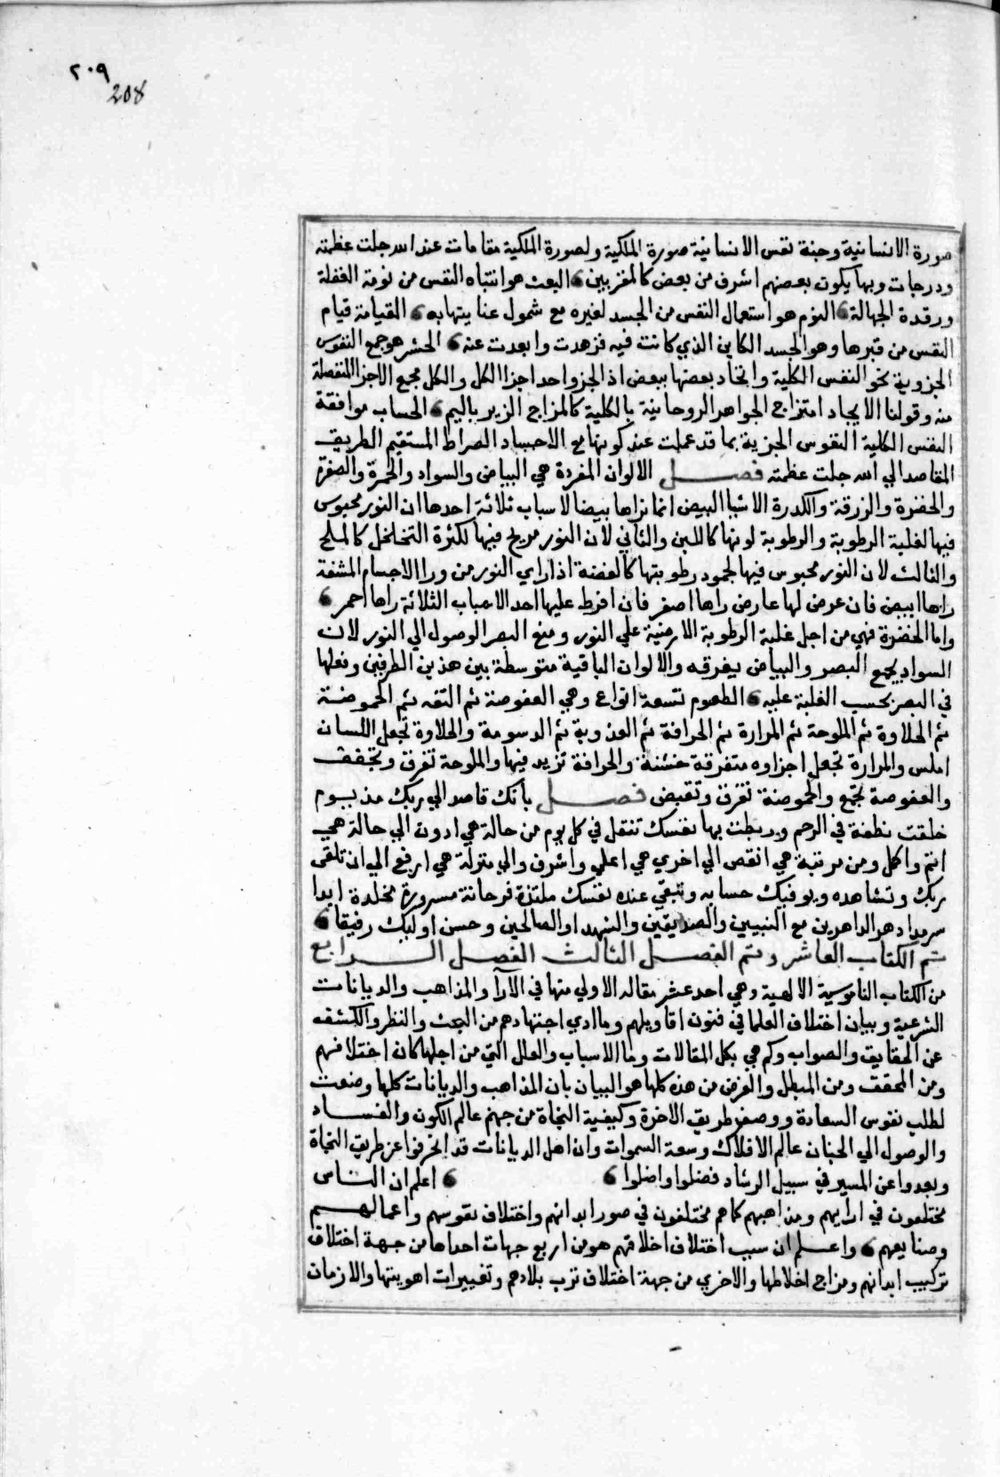 ٢٠٩
208
صورة الانسانية وجنة نفس الانسانية صورة الملكية ولصورة الملكية مقامات عند الله جلت عظمته
ودرجات وبها يكون بعضهم اشرف من بعض كالمقربين البعث هو انتباه النفس من نومة الغفلة
ورقدة الجهالة النوم هو استعمال النفس من الجسد لغيره مع شمول عنايتها به القيامة قيام
النفس من قبرها وهو الجسد الكاين الذي كانت فيه فزهدت وابعدت عنه الحشر هو جمع النفوس
الجزوية نحو النفس الكلية واتحاد بعضها ببعض اذ الجزو احد اجزا الكل والكل مجمع الاجزا المنفصلة
منه وقولنا الايجاد امتزاج الجواهر الروحانية بالكلية كالمزاج الزير باليم الحساب موافقة
النفس الكلية النفوس الجزية بما قد عملت عند كونها مع الاجساد الصراط المستقيم الطريق
القاصد الي الله جلت عظمته فصل الالوان المفردة هي البياض والسواد والحمرة والصفرة
والخضرة والزرقة والكدرة الاشيا البيض انما نراها بيضا لاسباب ثلاثة احدها ان النور محبوس
فيها لغلبة الرطوبة والرطوبة لونها كاللبن والثاني لان النور مريح فيها لكثرة التخلخل كالملح
والثالث لان النور محبوس فيها لجمود رطوبتها كالفضة اذا راي النور من ورا الاجسام المشفة
راها ابيض فان عرض لها عارض راها اصفر فان افرط عليها احد الاسباب الثلاثة راها احمر
واما الخضرة فهي من اجل غلبة الرطوبة الارضية علي النور ومنع البصر الوصول الي النور لان
السواد يجمع البصر والبياض يفرقه والالوان الباقية متوسطة بين هذين الطرفين وفعلها
في البصر بحسب الغلبة عليه الطعوم تسعة انواع وهي العفوصة ثم التفه ثم الحموضة
ثم الحلاوة ثم الملوحة ثم المرارة ثم الحرافة ثم العذوبة ثم الدسومة والحلاوة تجعل اللسان
املس والمرارة تجعل اجزاوه متفرقة خشنة والحرافة تزيد فيها والملوحة تفرق وتجفف
والعفوصة تجمع والحموضة تفرق وتقبض فصل بانك قاصد الي ربك مذ يوم
خلقت نطفة في الرحم وربطت بها نفسك تنقل في كل يوم من حالة هي ادون الي حالة هي
اتم واكل ومن مرتبة هي انقص الي اخري هي اعلي واشرف والي منزلة هي ارفع الي ان تلقي
ربك وتشاهده ويوفيك حسابه وتبقي عنده نفسك ملتذة فرحانة مسرورة مخلدة ابدا
سرمدا دهر الداهرين مع النبيين والصديقين والشهدا والصالحين وحسن اوليك رفيقا
تم الكتاب العاشر وتم الفصل الثالث الفصل الرابع
من الكتاب الناموسية الالهية وهي احد عشر مقاله الاولي منها في الآرا والمذاهب والديانات
الشرعية وبيان اختلاف العلما في فنون اقاويلهم وما ادي اجتهادهم من البحث والنظر والكشف
عن الحقايق والصواب وكم هي بكل المقالات وما الاسباب والعلل التي من اجلها كان اختلافهم
ومن المحقق ومن المبطل والغرض من هذه كلها هو البيان بان المذاهب والديانات كلها وضعت
لطلب نفوس السعادة ووصف طريق الاخرة وكيفية النجاة من جهنم عالم الكون والفساد
والوصول الي الجنان عالم الافلاك وسعة السموات وان اهل الديانات قد انحرفوا عن طريق النجاة
وبعدوا عن المسير في سبيل الرشاد فضلوا واضلوا اعلم ان الناس
مختلفون في ارايهم ومذاهبهم كما هم مختلفون في صور ابدانهم واختلاف نفوسهم واعمالهم
وصنايعهم واعلم ان سبب اختلاف اخلاقهم هو من اربع جهات احداها من جهة اختلاف
تركيب ابدانهم ومزاج اخلاطها والاخري من جهة اختلاف ترب بلادهم وتغييرات اهويتها والازمان